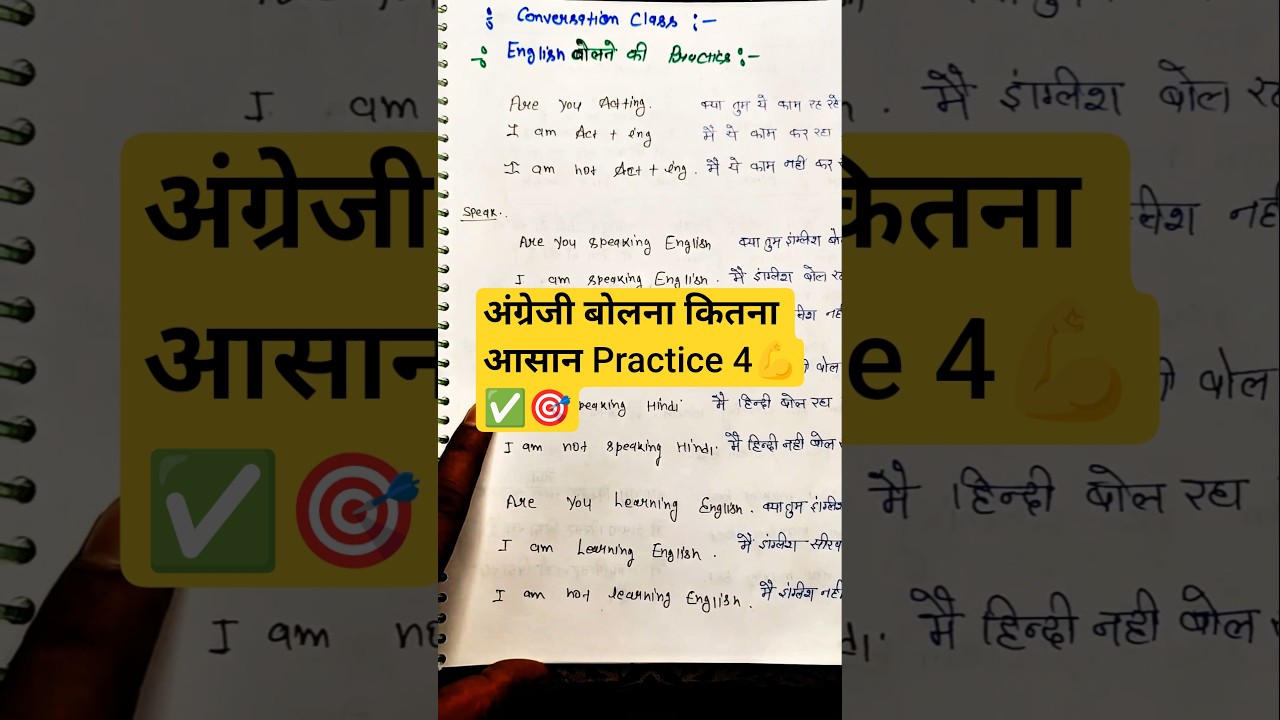 Conversation Class :-
English बोलने की Practice :-
Are you Acting. क्या तुम ये काम रह रहे
I am Act + ing मै ये काम कर रहा
I am not Act + ing. मै ये काम नही कर
Speak..
Are you speaking English क्या तुम इंग्लिश
I am speaking English. मै इंग्लिश बोल
अंग्रेजी बोलना कितना
आसान Practice 4💪
✅🎯
speaking Hindi मै हिन्दी बोल रहा
I am not speaking Hindi. मै हिन्दी नही बोल
Are you Learning English. क्या तुम
I am Learning English. मै इंग्लिश
I am not learning English. मै इंग्लिश नही